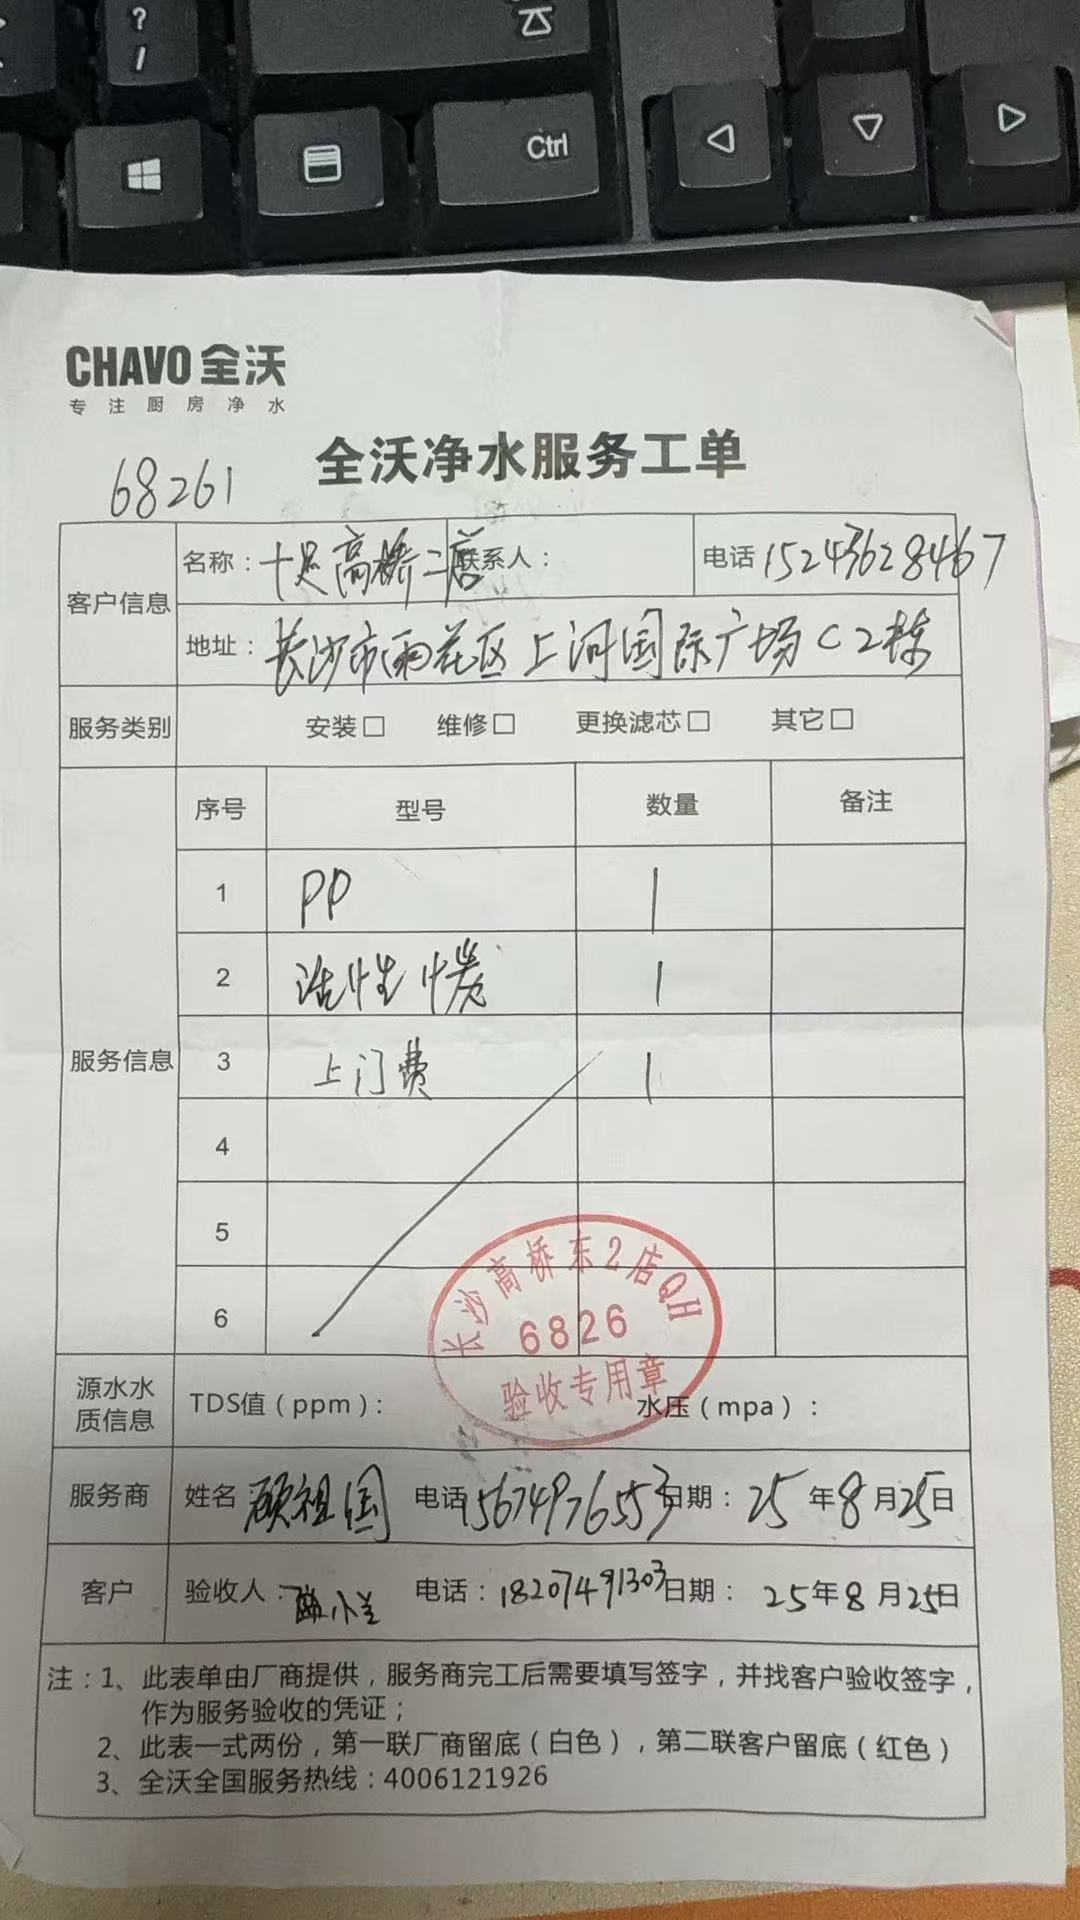 ?
/
Ctrl
CHAVO 全沃
专注厨房净水
全沃净水服务工单
68261
客户信息 名称：十足高桥二店 联系人： 电话 15243628467
地址：长沙市雨花区上河国际广场C2栋
服务类别 安装□ 维修□ 更换滤芯□ 其它□
服务信息
序号 型号 数量 备注
1 PP 1
2 活性炭 1
3 上门费 1
4
5
6
长沙高桥东2店QH
6826
验收专用章
源水水质信息 TDS值（ppm）： 水压（mpa）：
服务商 姓名 顾祖国 电话 15674976553 日期：25年8月25日
客户 验收人： 小兰 电话：18207491303 日期：25年8月25日
注：1、此表单由厂商提供，服务商完工后需要填写签字，并找客户验收签字，
作为服务验收的凭证；
2、此表一式两份，第一联厂商留底（白色），第二联客户留底（红色）
3、全沃全国服务热线：4006121926